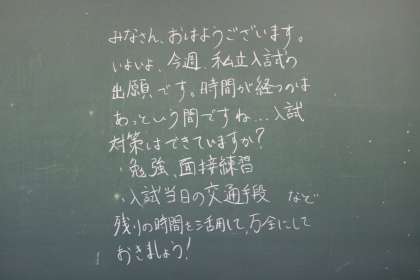 みなさん、おはようございます。
いよいよ、今週、私立入試の
出願です。時間が経つのは
あっという間ですね…入試
対策はできていますか？
・勉強、面接練習
・入試当日の交通手段 など
残りの時間を活用して、万全にして
おきましょう！